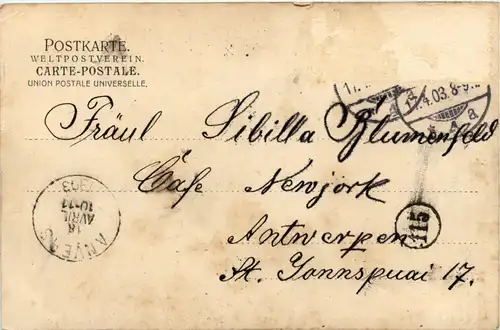 POSTKARTE.
WELTPOSTVEREIN.
CARTE-POSTALE.
UNION POSTALE UNIVERSELLE.
17.4.03.8-9
a
Fräul Sibilla Blumenfeld
Cafe Newjork
Antwerpen
St. Jonnspuai 17.
115
ANVERS
18
AVRIL
10-11